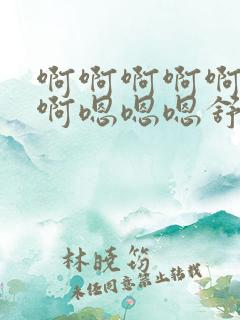 啊啊啊啊啊
啊嗯嗯嗯舒
林晓筠
未经同意禁止转载